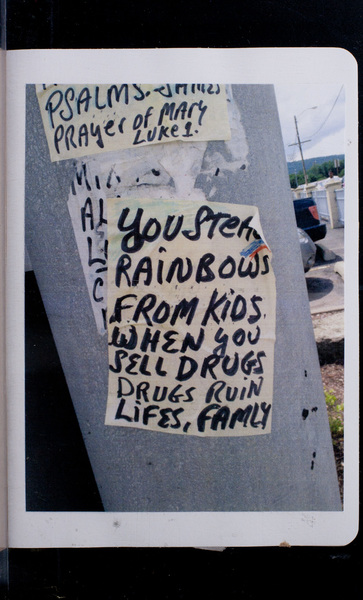 PSALMS. JAMES
PRAyer of MARY
LUKE 1.
AL
YOU STEAL
RAINBOWS
FROM KIDS.
WHEN YOU
SELL DRUGS
DRUGS RUIN
LIFES, FAMLY